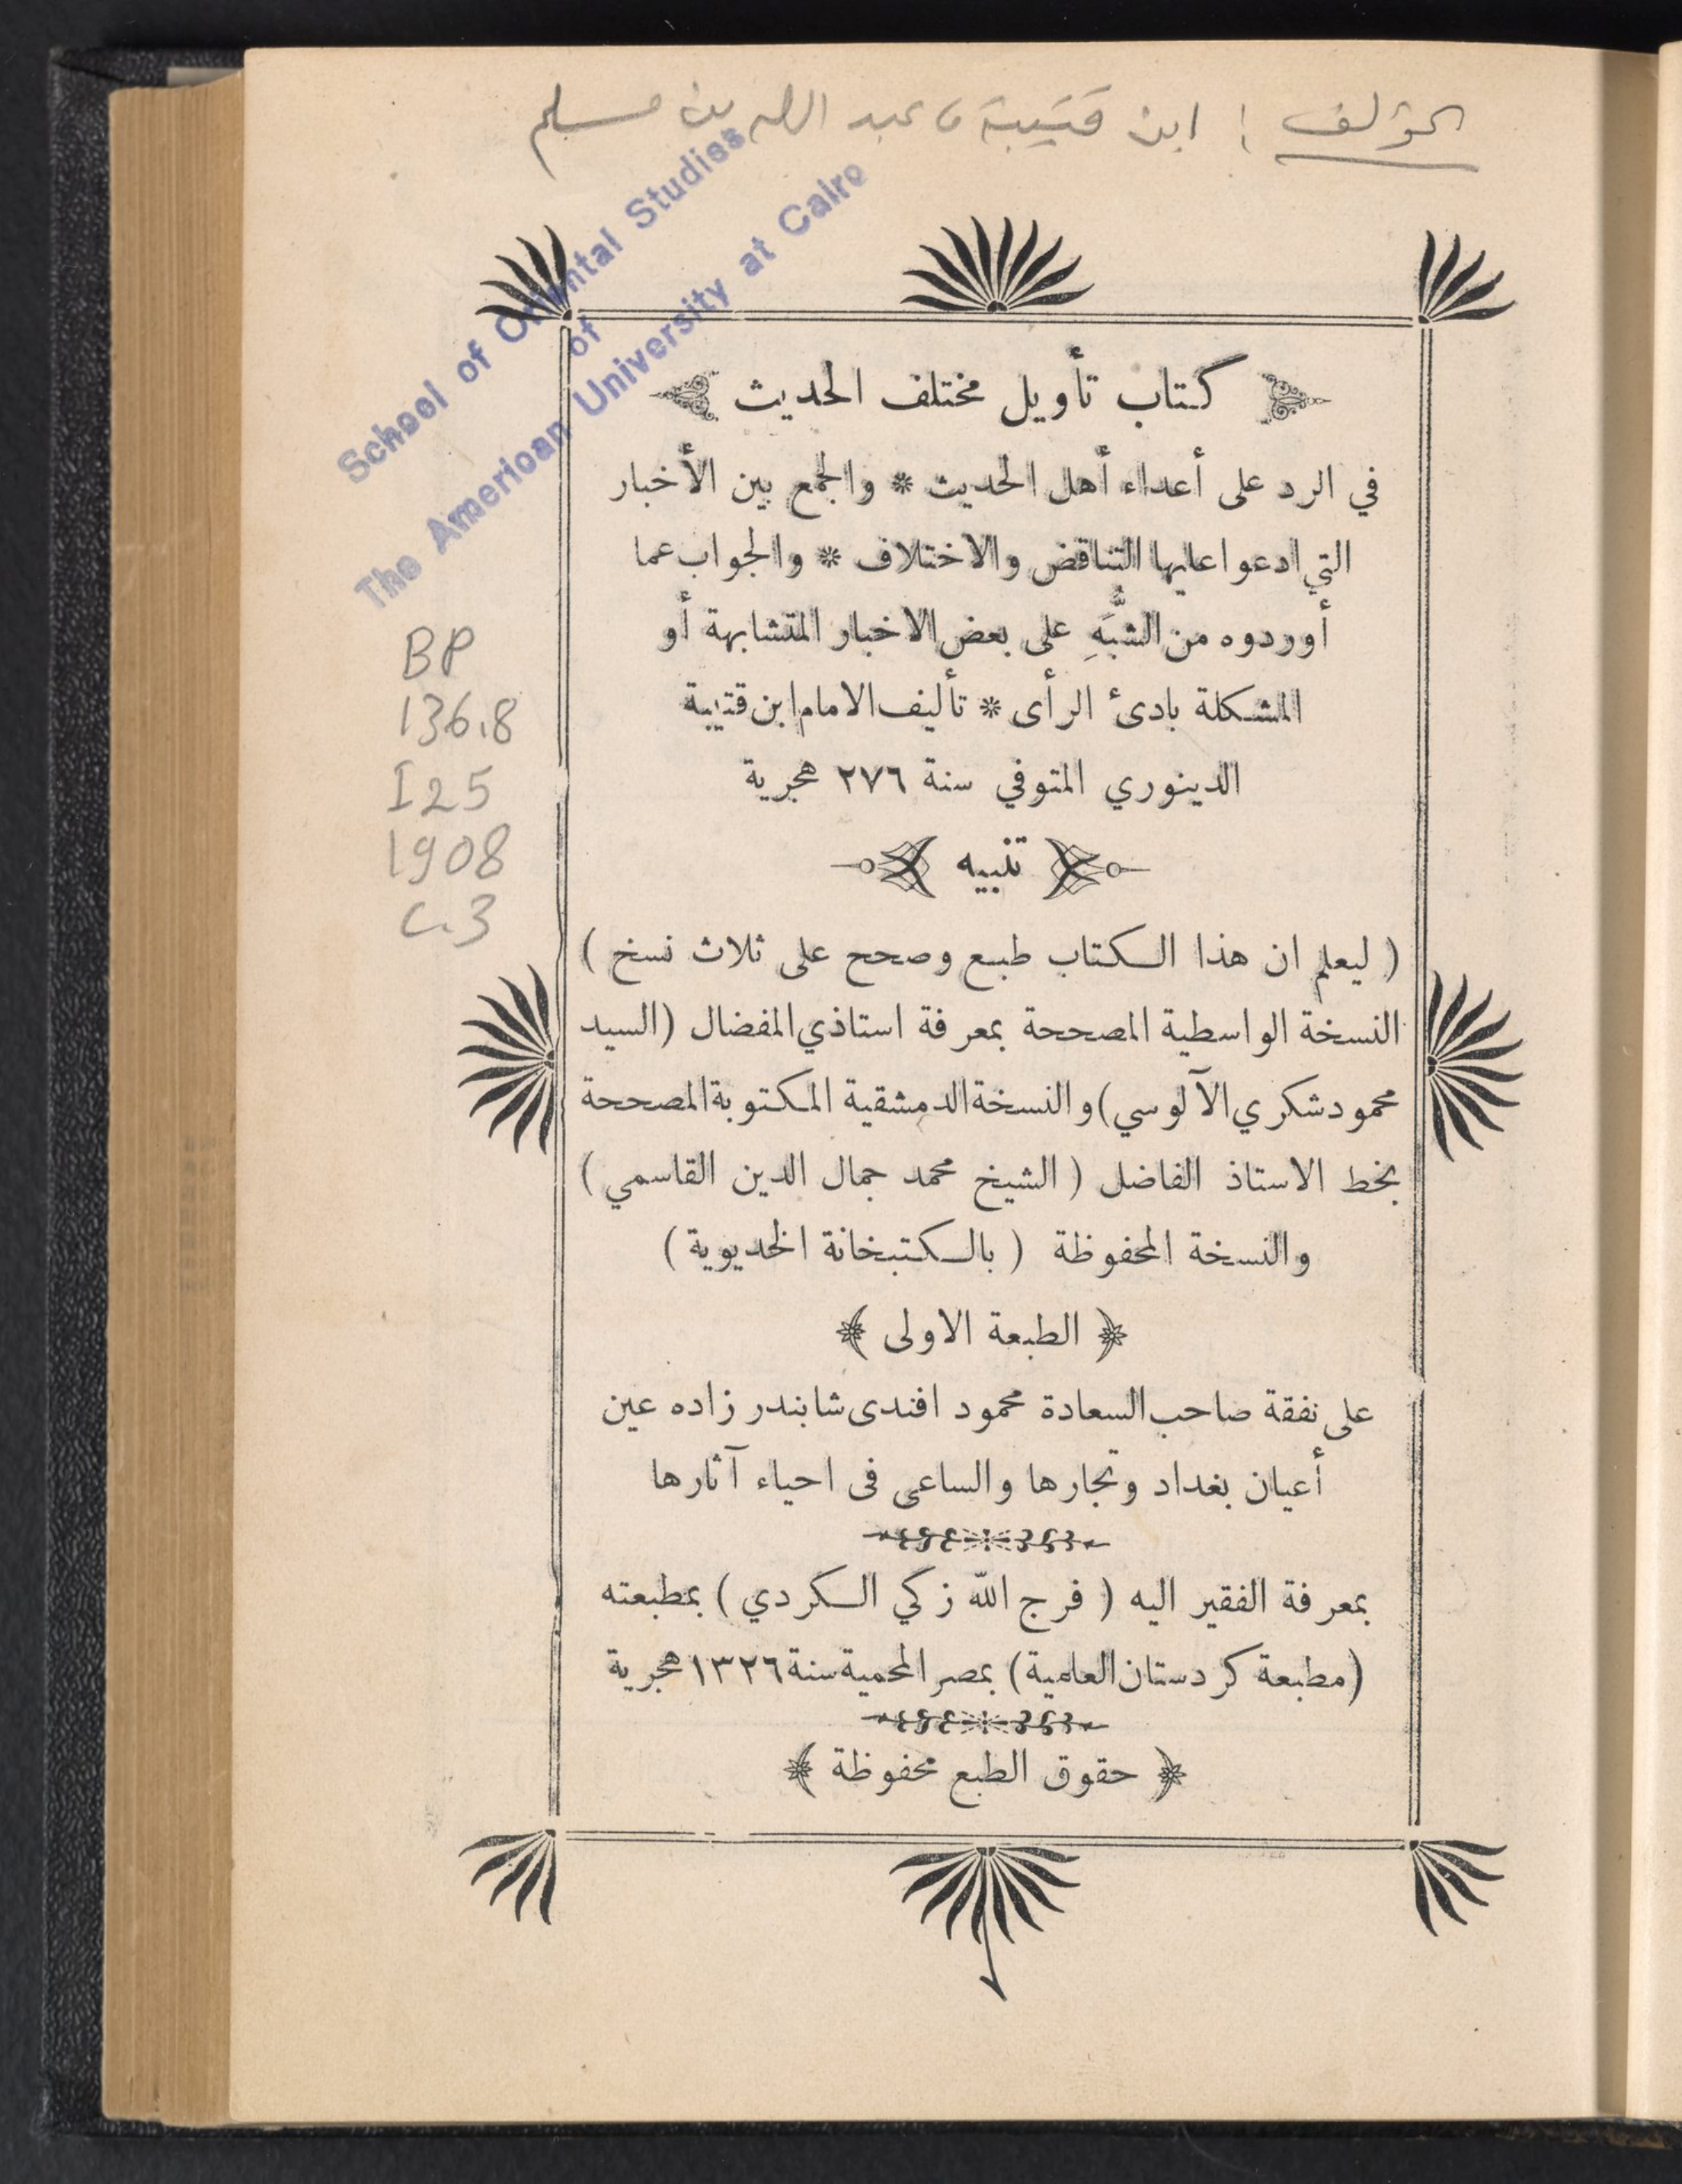 المؤلف : ابن قتيبة، عبد الله بن مسلم
School of Oriental Studies
of
The American University at Cairo
BP
136.8
I25
1908
c.3
كتاب تأويل مختلف الحديث
في الرد على أعداء أهل الحديث * والجمع بين الأخبار
التي ادعوا عليها التناقض والاختلاف * والجواب عما
أوردوه من الشُّبَهِ على بعض الاخبار المتشابهة أو
المشكلة بادئ الرأى * تأليف الامام ابن قتيبة
الدينوري المتوفي سنة ٢٧٦ هجرية
تنبيه
( ليعلم ان هذا الكتاب طبع وصحح على ثلاث نسخ )
النسخة الواسطية المصححة بمعرفة استاذي المفضال (السيد
محمود شكري الآلوسي) والنسخة الدمشقية المكتوبة المصححة
بخط الاستاذ الفاضل ( الشيخ محمد جمال الدين القاسمي )
والنسخة المحفوظة ( بالكتبخانة الخديوية )
﴿ الطبعة الاولى ﴾
على نفقة صاحب السعادة محمود افندى شابندر زاده عين
أعيان بغداد وتجارها والساعى فى احياء آثارها
بمعرفة الفقير اليه ( فرج الله زكي الكردي ) بمطبعته
(مطبعة كردستان العلمية) بمصر المحمية سنة ١٣٢٦ هجرية
﴿ حقوق الطبع محفوظة ﴾